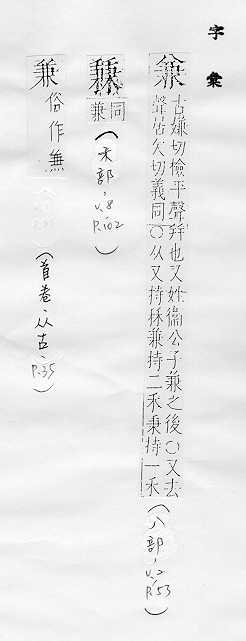 字彙
兼
古嫌切檢平聲幷也又姓衞公子兼之後〇又去
聲居欠切義同〇从又持秝兼持二禾秉持一禾
(八部,v.2 P.53)
同
兼
(禾部,v.8 P.102)
兼俗作
(首卷,从古,P.35)